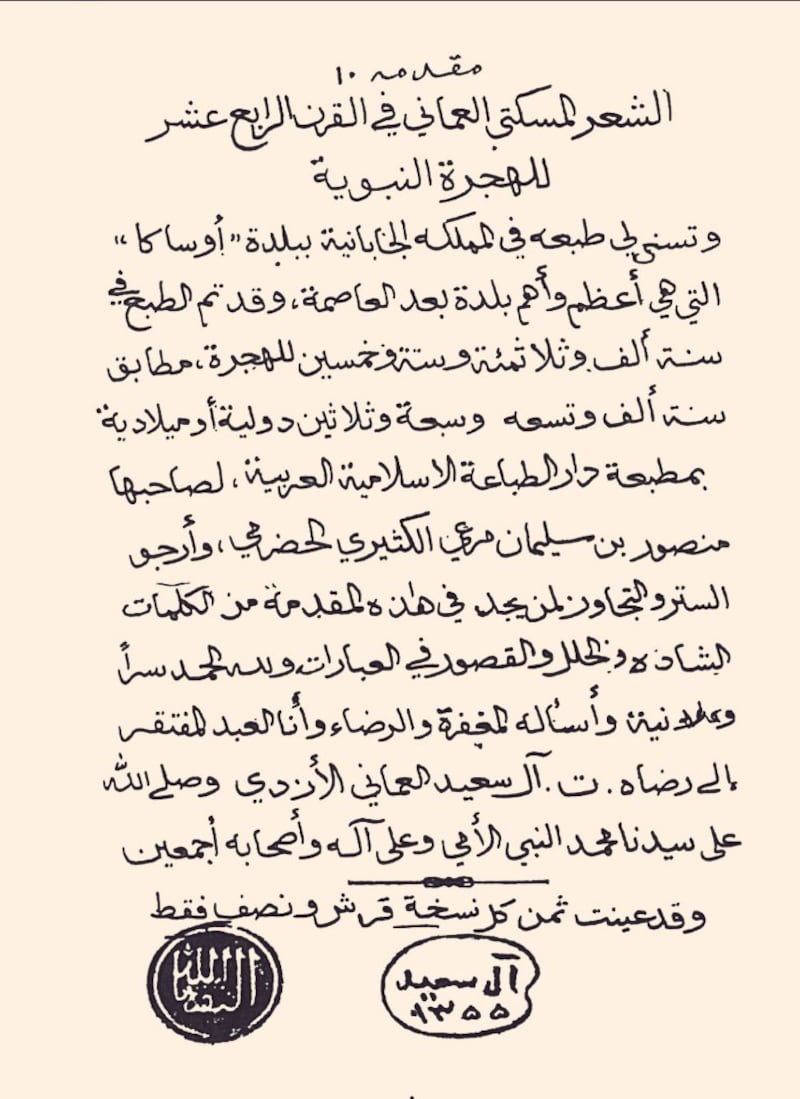 مقدمه ١٠
الشعر المسكتي العماني في القرن الرابع عشر
للهجرة النبوية
وتسنى لي طبعه في المملكه الجابانية ببلدة "أوساكا"
التي هي أعظم وأهم بلدة بعد العاصمة، وقد تم الطبع في
سنة ألف وثلاثمئة وستة وخمسين للهجرة، مطابق
سنة ألف وتسعه وسبعة وثلاثين دولية أو ميلادية
بمطبعة دار الطباعة الاسلامية العربية، لصاحبها
منصور بن سليمان مرعي الكثيري الحضرمي، وأرجو
الستر والتجاوز لمن يجد في هذه المقدمة من الكلمات
الشاذه والخلل والقصور في العبارات ولله الحمد سراً
وعلانية وأسأله المغفرة والرضاء وأنا العبد المفتقر
إلى رضاه . ت . آل سعيد العماني الأزدي وصلى الله
على سيدنا محمد النبي الأمي وعلى آله وأصحابه أجمعين
وقد عينت ثمن كل نسخة قرش ونصف فقط
آل سعيد
١٣٥٥
الله